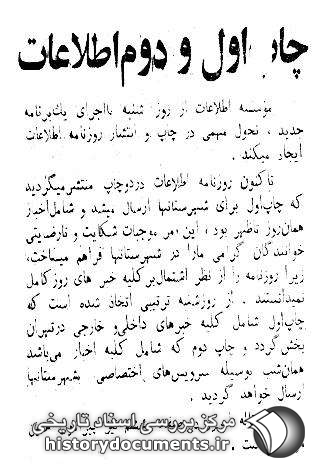 چاپ اول و دوم اطلاعات
مؤسسه اطلاعات از روز شنبه بااجرای یك برنامه
جدید ، تحول مهمی در چاپ و انتشار روزنامه اطلاعات
ایجاد میکند .
تاکنون روزنامه اطلاعات دردوچاپ منتشرمیگردید
که چاپ اول برای شهرستانها ارسال میشد و شامل اخبار
همان روز تاظهر بود ، این امر موجبات شکایت و نارضایتی
خوانندگان گرامی مارا در شهرستانها فراهم میساخت،
زیرا روزنامه را از نظر اشتمال بر کلیه خبر های روز کامل
نمیدانستند . از روزشنبه ترتیبی اتخاذ شده است که
چاپ اول شامل کلیه خبرهای داخلی و خارجی درتهران
پخش گردد و چاپ دوم که شامل کلیه اخبار میباشد
همان شب بوسیله سرویس‌های اختصاصی بشهرستانها
ارسال خواهد گردید .
مرکز بررسی اسناد تاریخی
historydocuments.ir